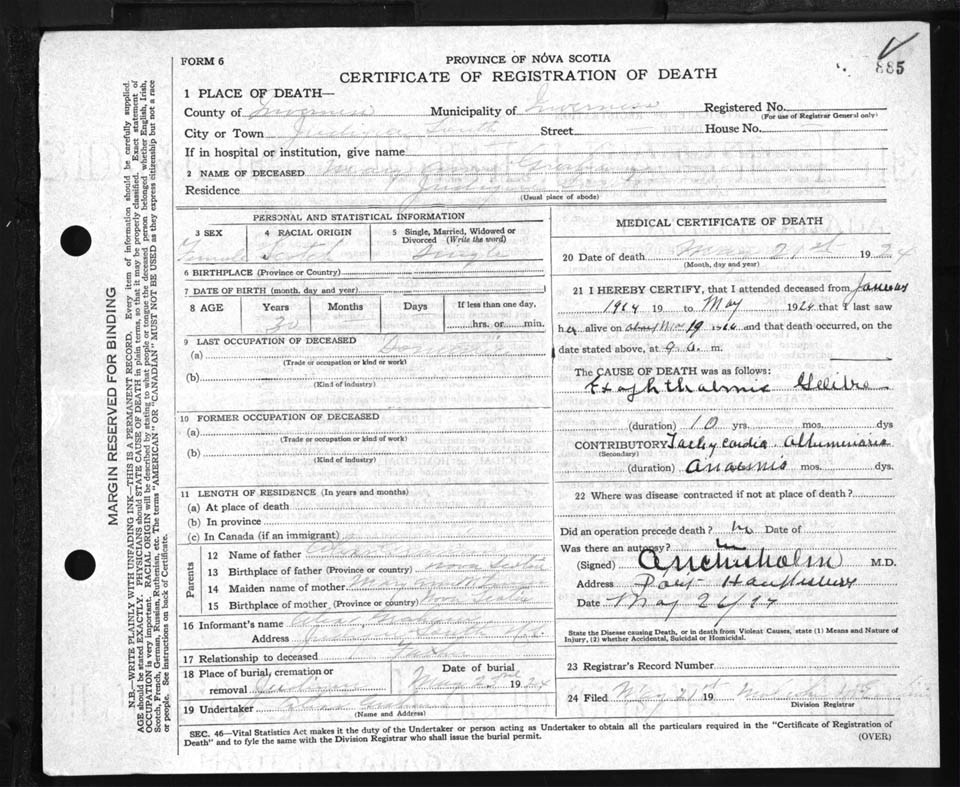 FORM 6
PROVINCE OF NOVA SCOTIA
CERTIFICATE OF REGISTRATION OF DEATH
885
1 PLACE OF DEATH—
County of Inverness Municipality of Inverness Registered No.
(For use of Registrar General only)
City or Town Judique South Street House No.
If in hospital or institution, give name
2 NAME OF DECEASED Mary
Residence Judique
(Usual place of abode)
PERSONAL AND STATISTICAL INFORMATION
3 SEX 4 RACIAL ORIGIN 5 Single, Married, Widowed or Divorced (Write the word)
Female Scotch Single
6 BIRTHPLACE (Province or Country)
7 DATE OF BIRTH (month, day and year)
8 AGE Years Months Days If less than one day,
30 hrs. or min.
9 LAST OCCUPATION OF DECEASED
(a)
(Trade or occupation or kind or work)
(b)
(Kind of industry)
10 FORMER OCCUPATION OF DECEASED
(a)
(Trade or occupation or kind of work)
(b)
(Kind of industry)
11 LENGTH OF RESIDENCE (In years and months)
(a) At place of death
(b) In province
(c) In Canada (if an immigrant)
Parents
12 Name of father
13 Birthplace of father (Province or country) Nova Scotia
14 Maiden name of mother Mary
15 Birthplace of mother (Province or country) Nova Scotia
16 Informant's name
Address Judique South N.S.
17 Relationship to deceased
18 Place of burial, cremation or removal Judique Date of burial May 23rd 1924
19 Undertaker
(Name and Address)
MEDICAL CERTIFICATE OF DEATH
20 Date of death May 21st 1924
(Month, day and year)
21 I HEREBY CERTIFY, that I attended deceased from January
1924 19 to May 1924 that I last saw
her alive on about May 19 1924 and that death occurred, on the
date stated above, at 9 a. m.
The CAUSE OF DEATH was as follows:
Exophthalmic Goitre
(duration) 10 yrs. mos. dys
CONTRIBUTORY Tachycardia Albuminuria
(Secondary)
(duration) Anaemia mos. dys.
22 Where was disease contracted if not at place of death?
Did an operation precede death? No Date of
Was there an autopsy? No
(Signed) M.D.
Address Port Hawkesbury
Date May 26/24
State the Disease causing Death, or in death from Violent Causes, state (1) Means and Nature of
Injury, (2) whether Accidental, Suicidal or Homicidal.
23 Registrar's Record Number
24 Filed May 21st 19
Division Registrar
SEC. 46—Vital Statistics Act makes it the duty of the Undertaker or person acting as Undertaker to obtain all the particulars required in the "Certificate of Registration of
Death" and to fyle the same with the Division Registrar who shall issue the burial permit.
(OVER)
MARGIN RESERVED FOR BINDING
N.B.—WRITE PLAINLY WITH UNFADING INK—THIS IS A PERMANENT RECORD. Every item of information should be carefully supplied.
AGE should be stated EXACTLY. PHYSICIANS should STATE CAUSE OF DEATH in plain terms, so that it may be properly classified. Exact statement of
OCCUPATION is very important. RACIAL ORIGIN will be described by stating to what people or tongue the deceased person belonged whether English, Irish,
Scotch, French, German, Russian, Ruthenian, etc. The terms "AMERICAN" OR "CANADIAN" MUST NOT BE USED as they express citizenship but not a race
or people. See instructions on back of Certificate.